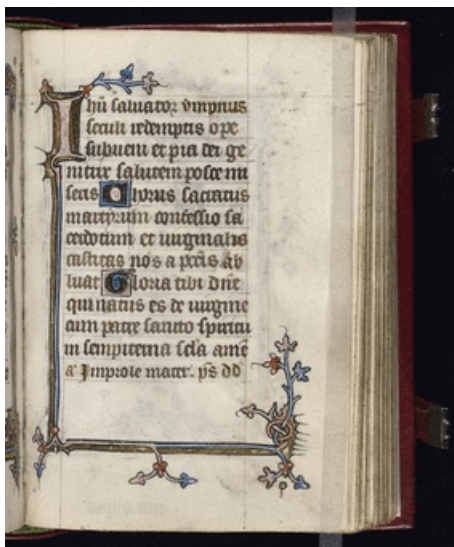 Ihū saluator omnous
seculi redemptis ope
subueni et pia dei ge
nitrix salutem posce mi
seris Chorus sacratus
martyrum confessio sa
cerdotum et uirginalis
castitas nos a pccīs ab
luat Gloria tibi dn̄e
qui natus es de uirgine
cum patre sancto spiritu
in sempiterna sc̄la amē
a Improle mater. ps dd